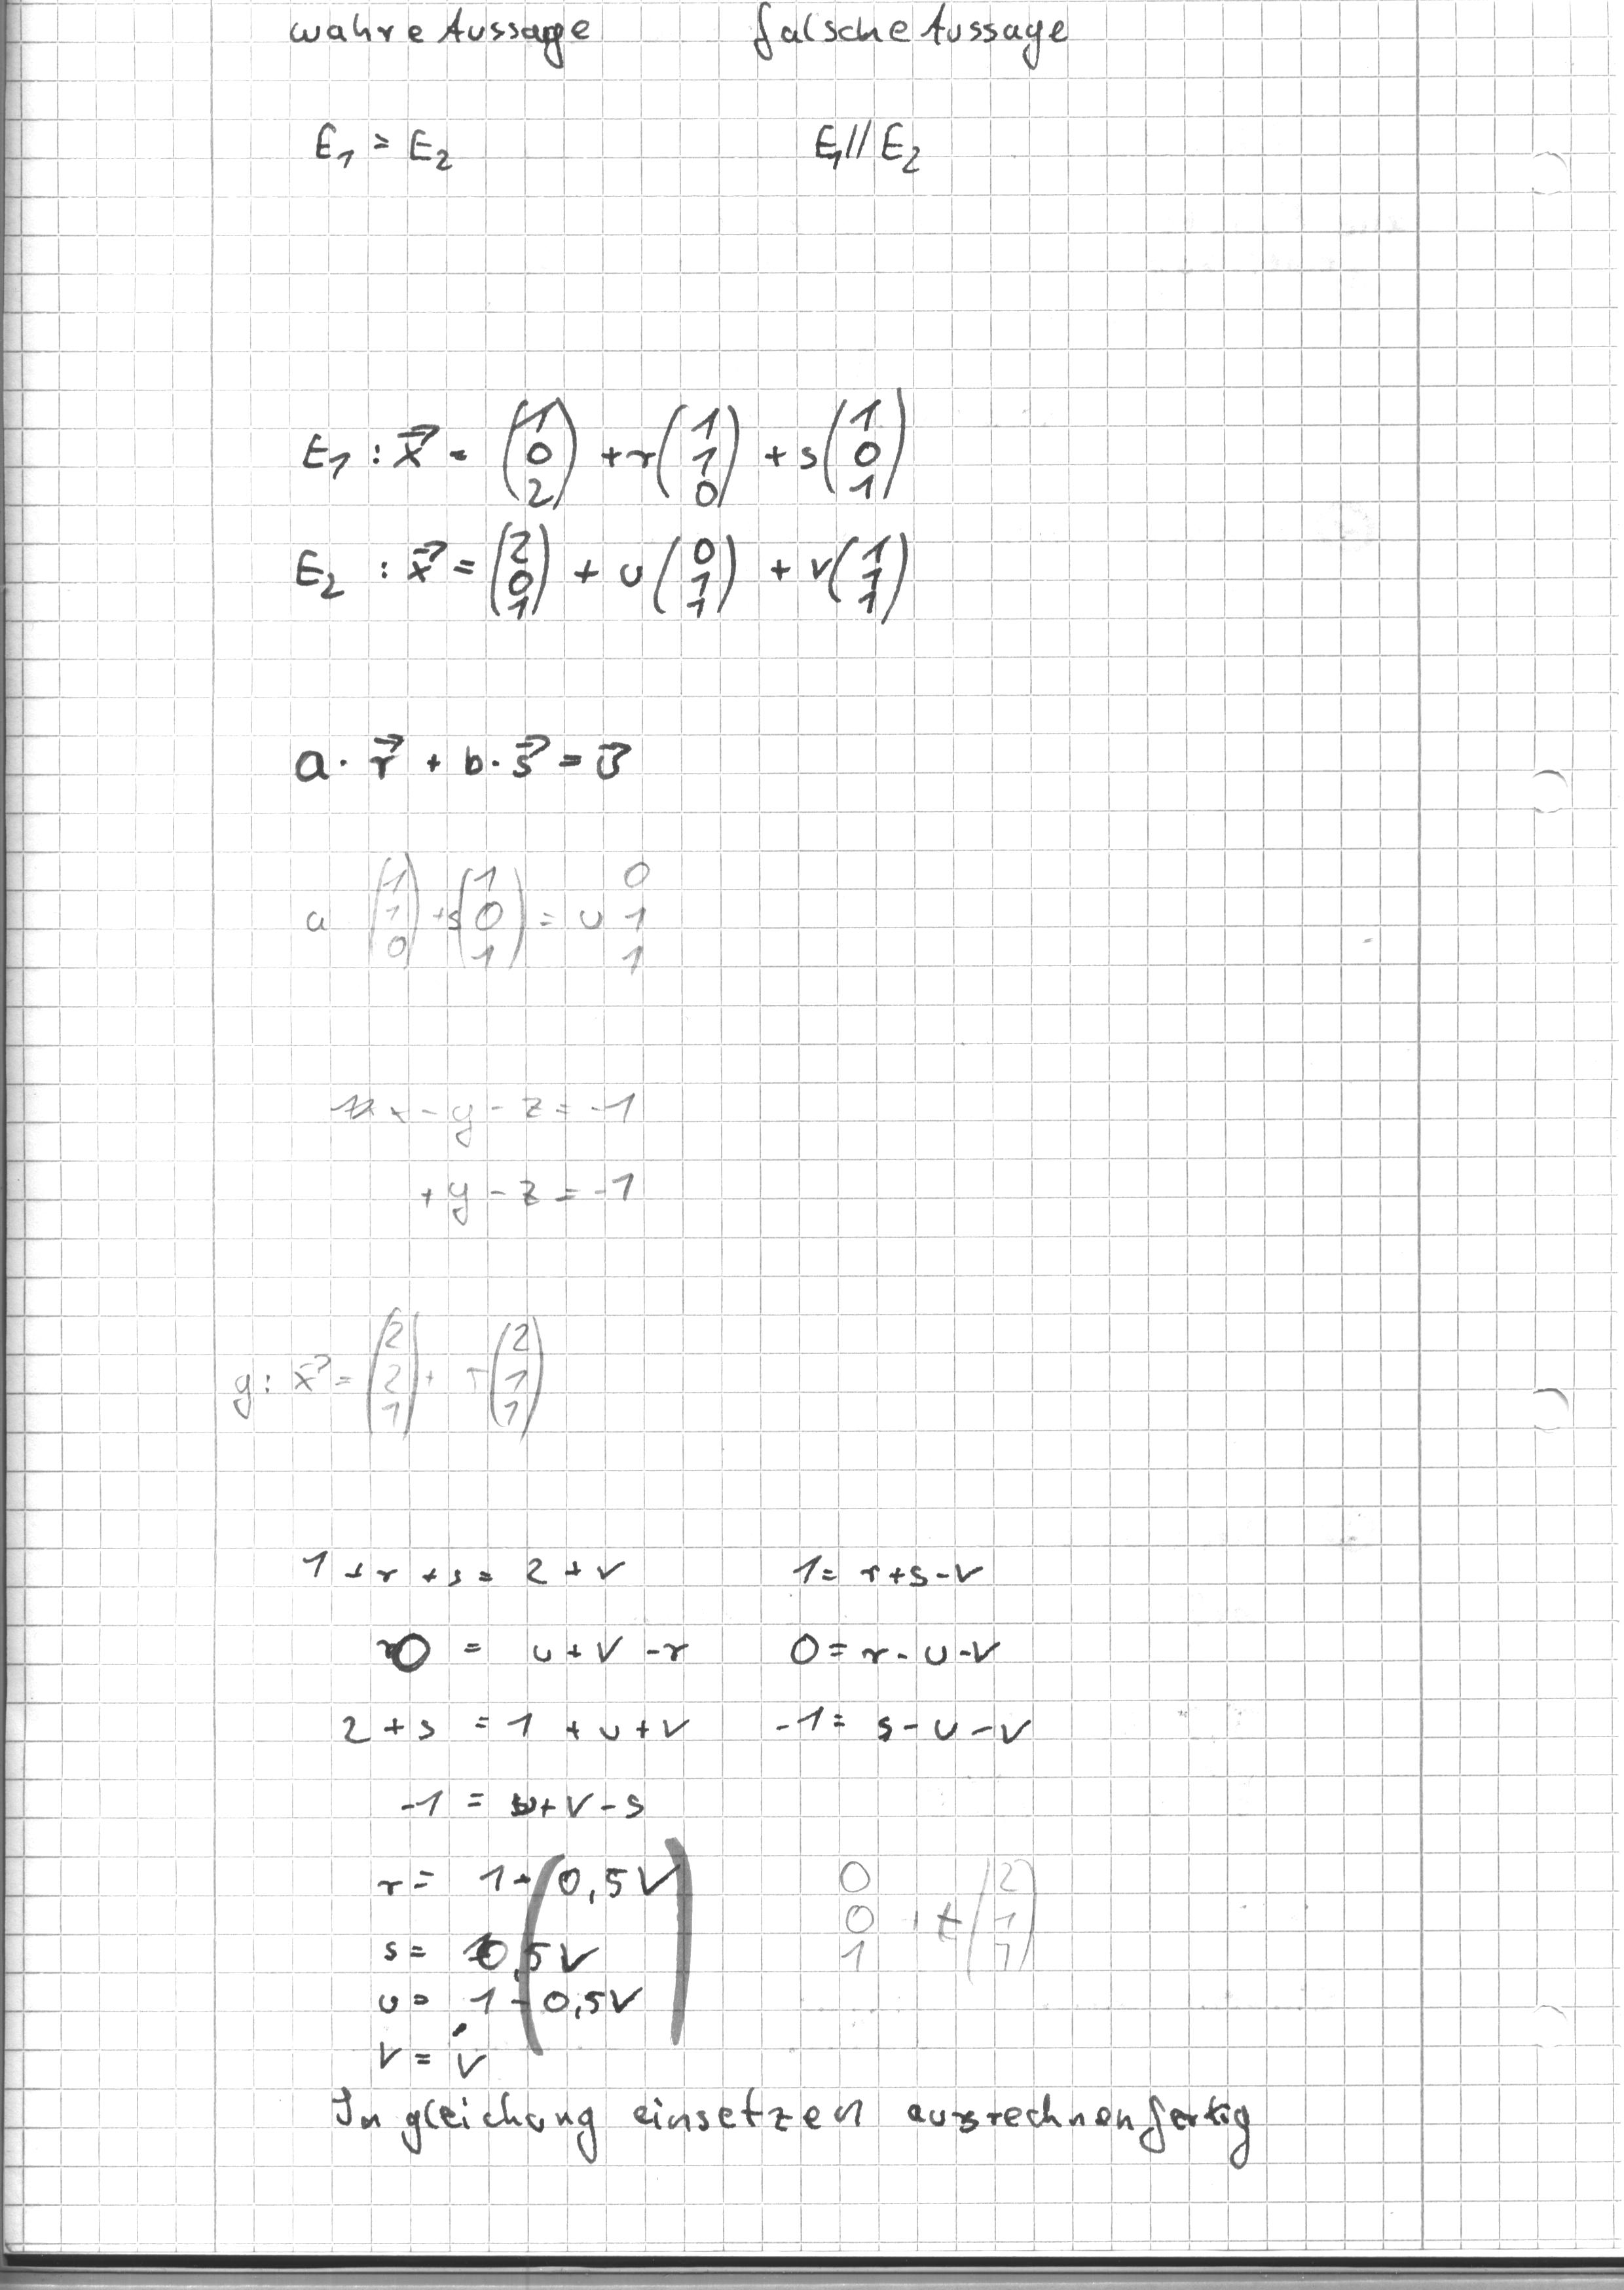 wahre Aussage falsche Aussage
E₁ = E₂ E₁ // E₂
E₁ : x⃗ = (1 0 2) + r (1 1 0) + s (1 0 1)
E₂ : x⃗ = (2 0 1) + u (0 1 1) + v (1 1 1)
a · r⃗ + b · s⃗ = 0⃗
a (1 1 0) + s (1 0 1) = u 0 1 1
x - y - z = -1
+ y - z = -1
g : x⃗ = (2 2 1) + r (2 1 1)
1 + r + s = 2 + v 1 = r + s - v
0 = u + v - r 0 = r - u - v
2 + s = 1 + u + v -1 = s - u - v
-1 = u + v - s
r = 1 + 0,5 v
s = 0,5 v
u = 1 - 0,5 v
v = v
0 0 1 + t (2 1 1)
In gleichung einsetzen ausrechnen fertig